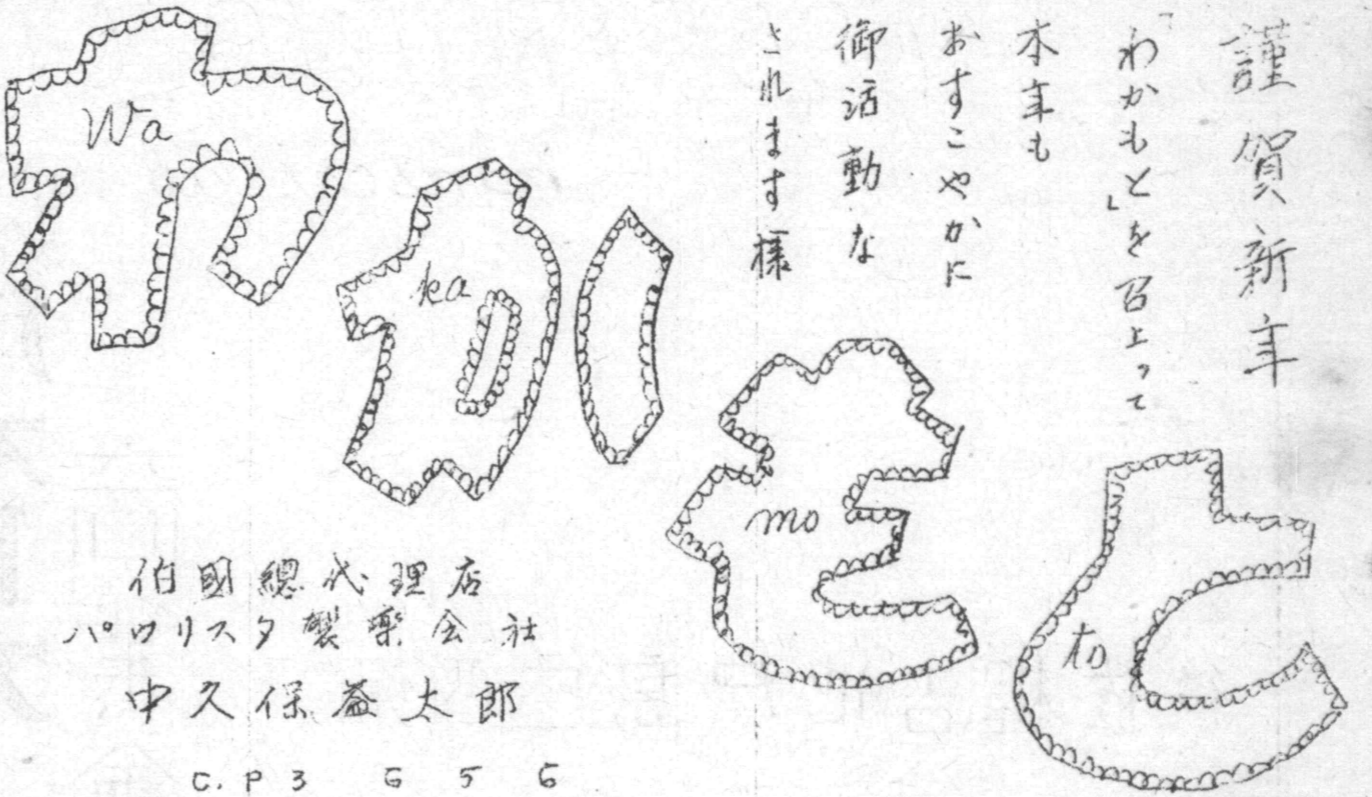 謹賀新年
「わかもと」を召上って
本年も
おすこやかに
御活動な
されます様
わ
Wa
か
ka
も
mo
と
to
伯国總代理店
パウリスタ製藥会社
中久保益太郎
C. P 3656